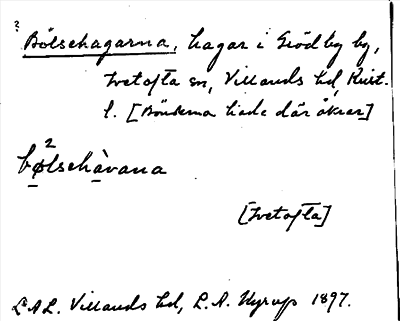 ? Bölschagarna, hagar i Gröd by by,
Ivetofta sn, Villands hd, Krist.
l. [Bönderna hade där åkrar]
bø²lschàvana
[Ivetofta]
LAL. Villands hd, L. A. Nyrup 1897.